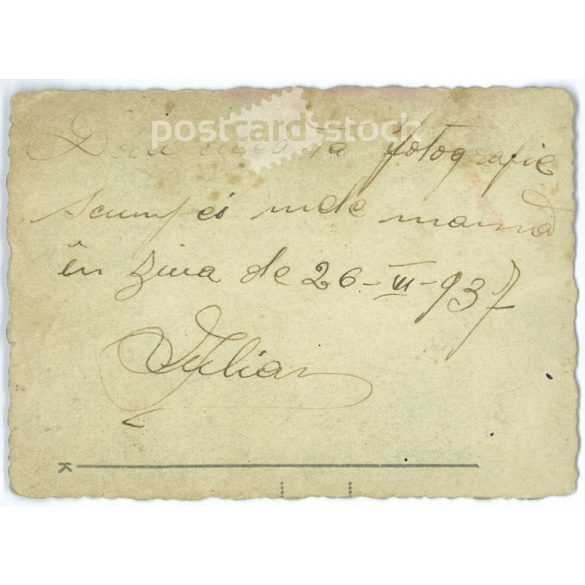 postcard-stock
fotografie
scumpei mele mame
în ziua de 26-VI-937
Iulian
K